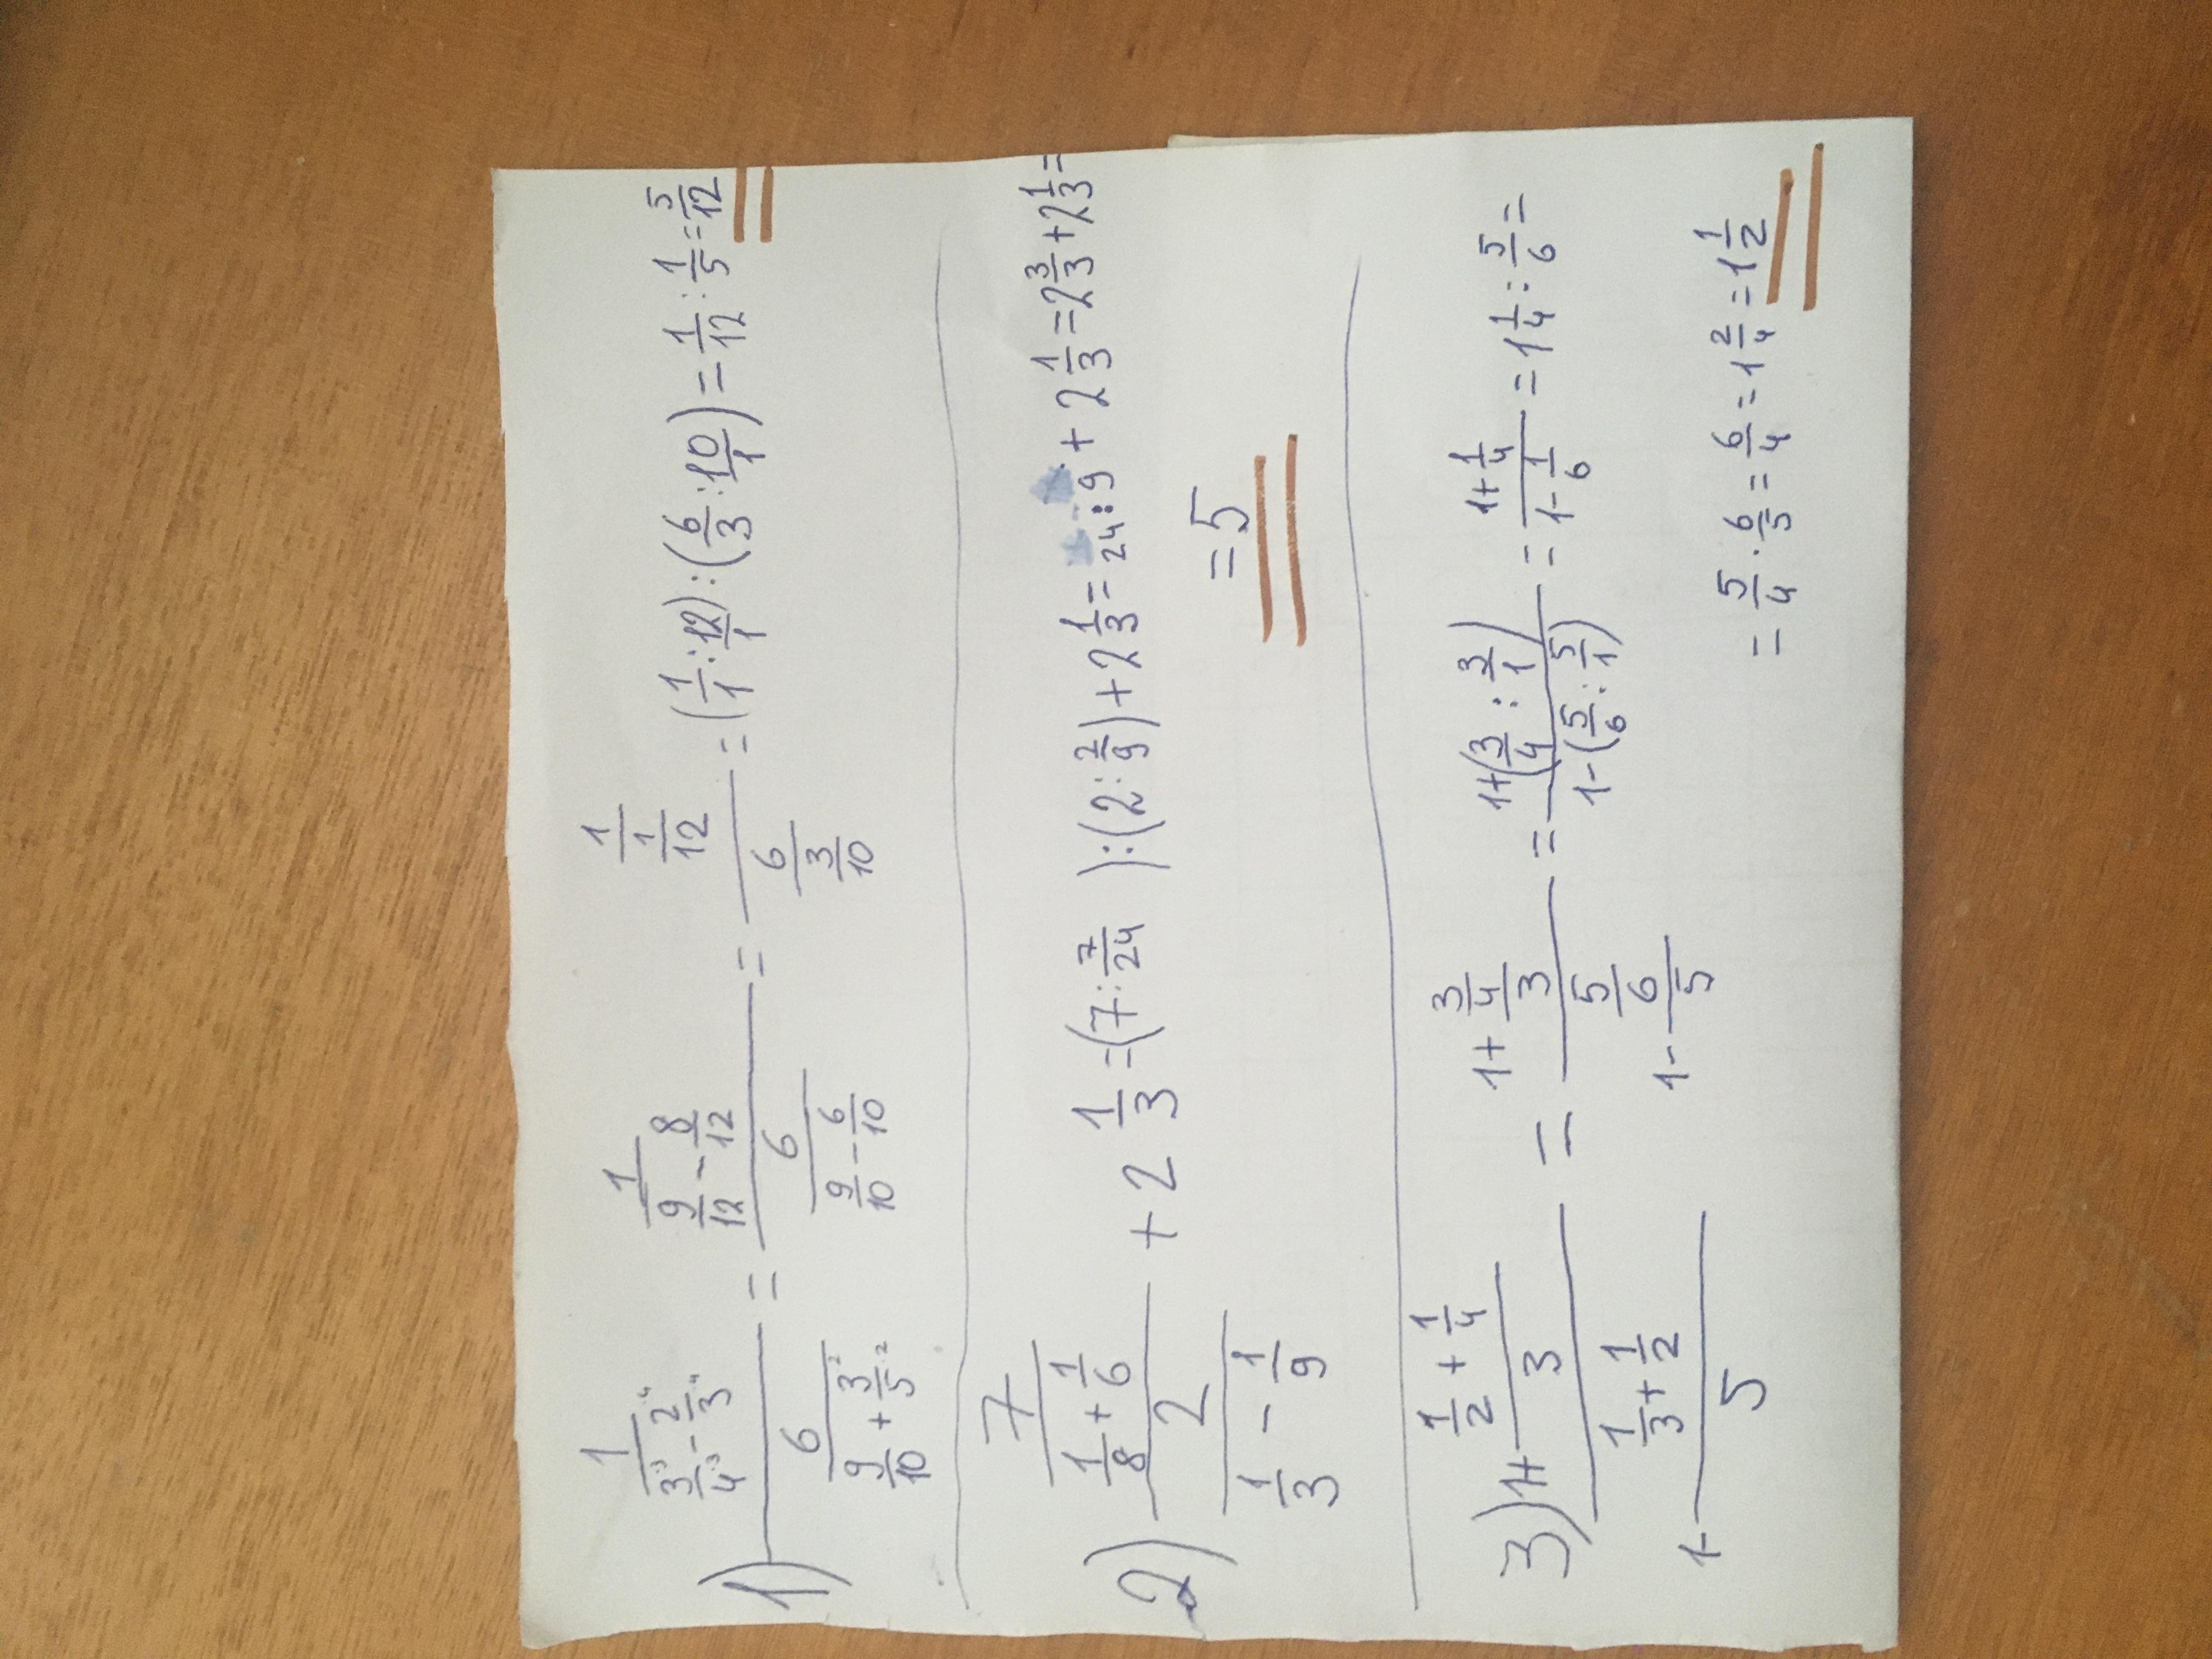 1) (1/(3·3/4·3 - 2·4/3·4))/(6/(9/10 + 3·2/5·2)) = (1/(9/12 - 8/12))/(6/(9/10 - 6/10)) = (1/(1/12))/(6/(3/10)) = (1/1 : 12/1) : (6/3 : 10/1) = 1/12 : 1/5 = 5/12
2) (7/(1/8 + 1/6))/(2/(1/3 - 1/9)) + 2 1/3 = (7 : 7/24) : (2 : 2/9) + 2 1/3 = 24 : 9 + 2 1/3 = 2 3/3 + 2 1/3 =
= 5
3) (1+ (1/2 + 1/4)/3)/(1- (1/3 + 1/2)/5) = (1+ (3/4)/3)/(1- (5/6)/5) = (1+(3/4 : 3/1))/(1-(5/6 : 5/1)) = (1+1/4)/(1-1/6) = 1 1/4 : 5/6 =
= 5/4 · 6/5 = 6/4 = 1 2/4 = 1 1/2